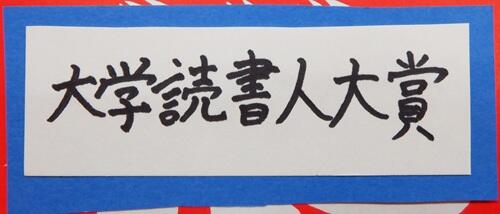 大学読書人大賞